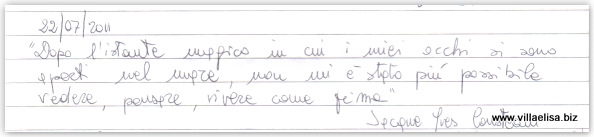 22/07/2011
"Dopo l'istante magico in cui i miei occhi si sono
aperti nel mare, non mi è stato più possibile
vedere, pensare, vivere come prima"
Jacque Yves Cousteau
www.villaelisa.biz